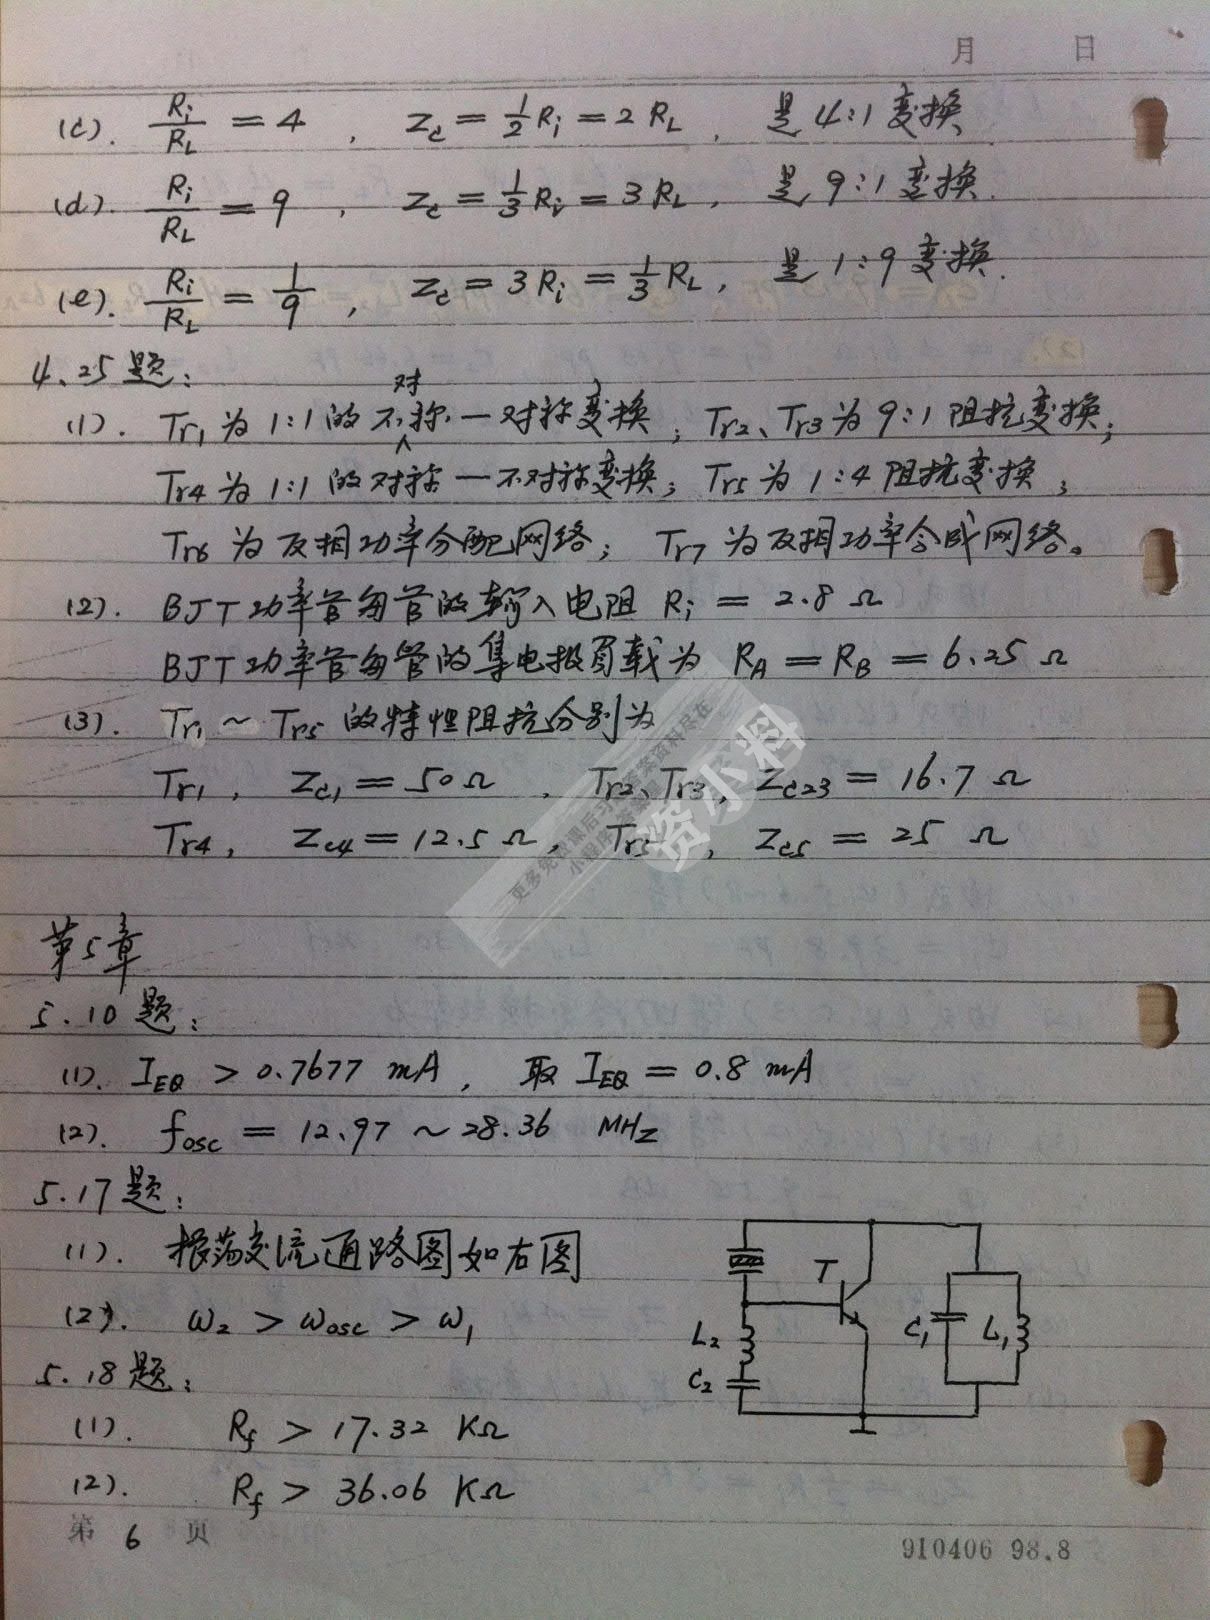 月 日
(c). Ri/RL = 4 , Zc = 1/2 Ri = 2 RL , 是 4:1 变换
(d). Ri/RL = 9 , Zc = 1/3 Ri = 3 RL , 是 9:1 变换.
(e). Ri/RL = 1/9 , Zc = 3 Ri = 1/3 RL , 是 1:9 变换.
4.25 题:
(1). Tr1 为 1:1 的不对称—对称变换; Tr2、Tr3 为 9:1 阻抗变换;
Tr4 为 1:1 的对称—不对称变换; Tr5 为 1:4 阻抗变换;
Tr6 为反相功率分配网络; Tr7 为反相功率合成网络。
(2). BJT 功率管每管的输入电阻 Ri = 2.8 Ω
BJT 功率管每管的集电极负载为 RA = RB = 6.25 Ω
(3). Tr1 ~ Tr5 的特性阻抗分别为
Tr1, Zc1 = 50 Ω , Tr2、Tr3, Zc23 = 16.7 Ω
Tr4, Zc4 = 12.5 Ω, Tr5, Zc5 = 25 Ω
更多免费课后习题答案资料尽在
小程序
资小料
第5章
5.10 题:
(1). IEQ > 0.7677 mA, 取 IEQ = 0.8 mA
(2). fosc = 12.97 ~ 28.36 MHz
5.17 题:
(1). 振荡交流通路图如右图
(2). ω2 > ωosc > ω1
T
C1 L1
L2
C2
5.18 题:
(1). Rf > 17.32 KΩ
(2). Rf > 36.06 KΩ
第 6 页
910406 98.8